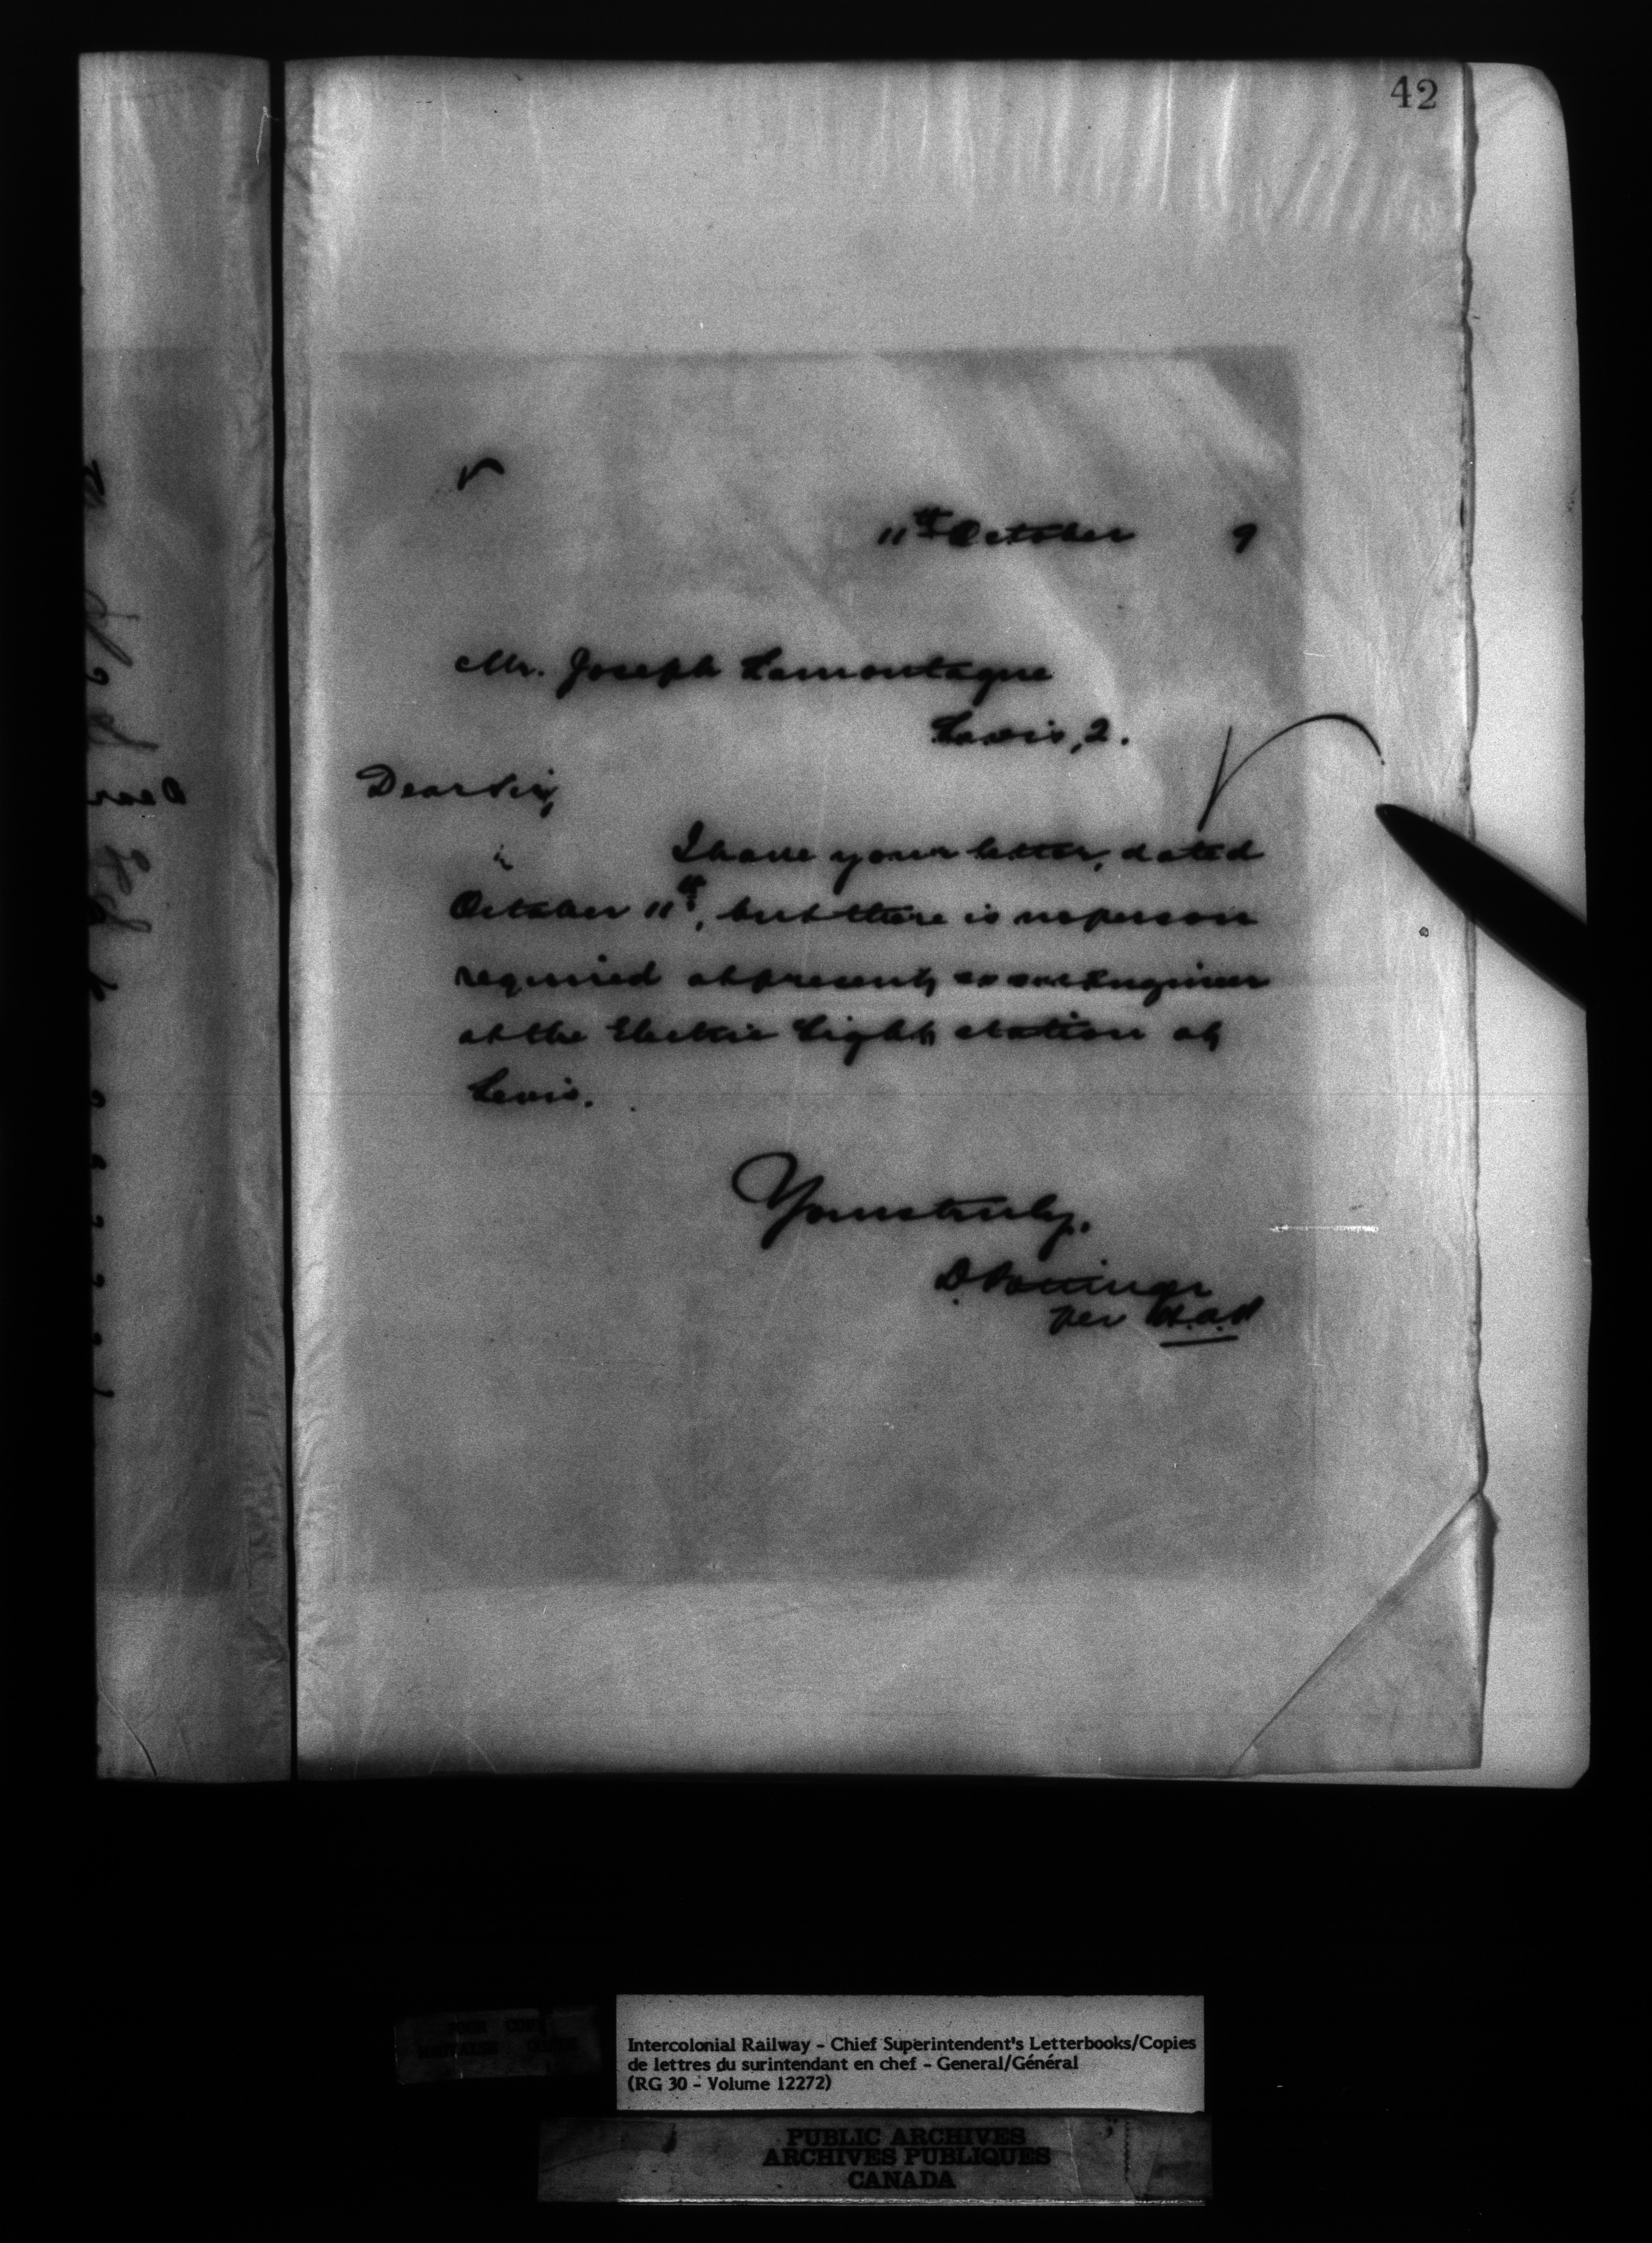 42
11th October 9
Mr. Joseph Lamontagne
Levis, Q.
Dear Sir,
I have your letter, dated
October 11th, but there is no person
required at present, as an Engineer
at the Electric Light station at
Levis.
Yours truly,
D. Pottinger
per
Intercolonial Railway - Chief Superintendent's Letterbooks/Copies
de lettres du surintendant en chef - General/Général
(RG 30 - Volume 12272)
PUBLIC ARCHIVES
ARCHIVES PUBLIQUES
CANADA